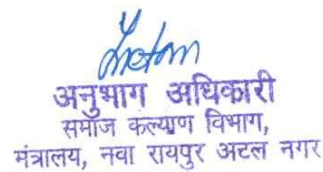 अनुभाग अधिकारी
समाज कल्याण विभाग,
मंत्रालय, नवा रायपुर अटल नगर